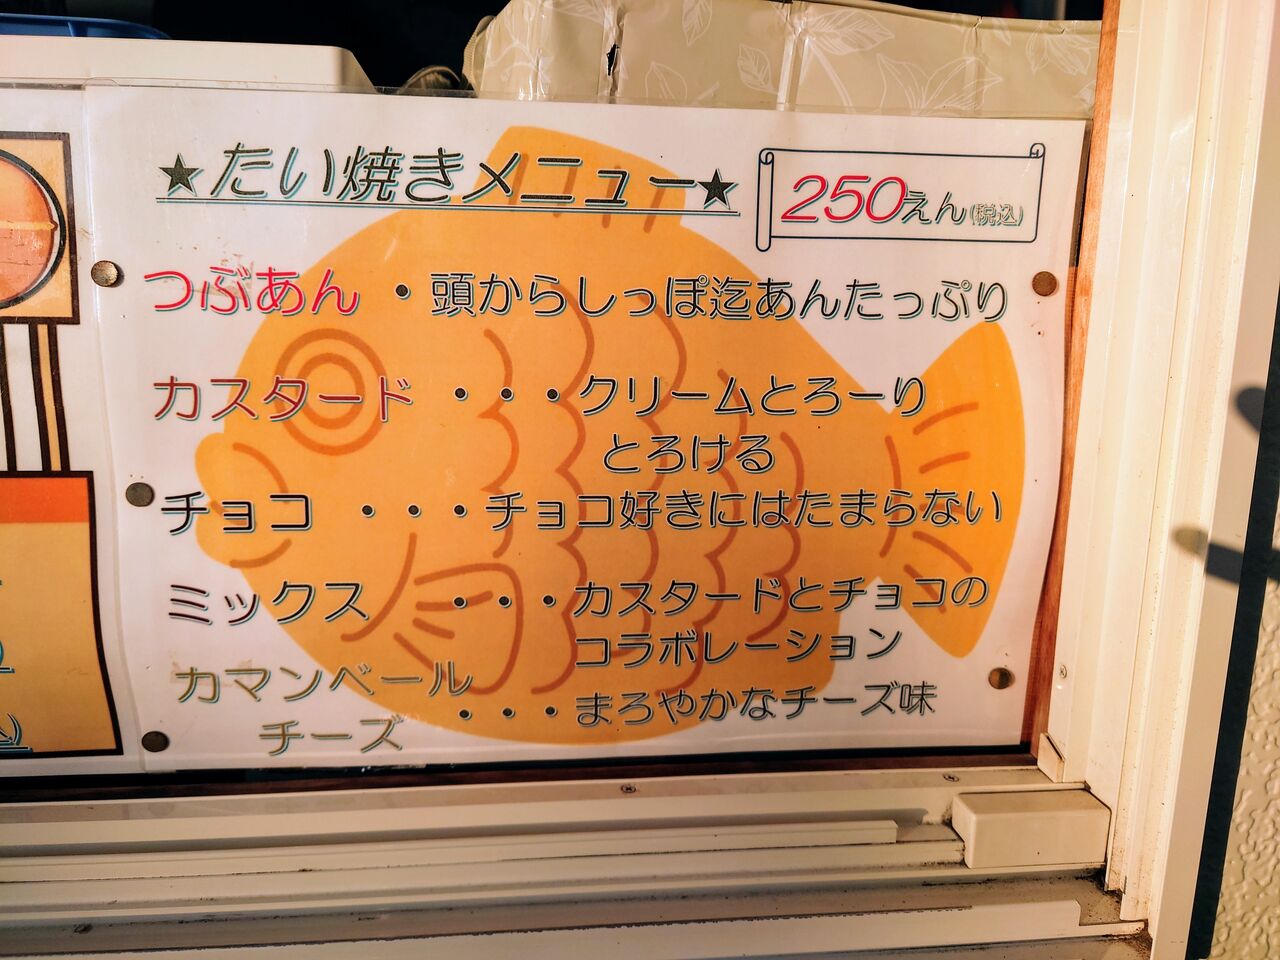 ★たい焼きメニュー★
250えん(税込)
つぶあん・頭からしっぽ迄あんたっぷり
カスタード・・・クリームとろーり
とろける
チョコ・・・チョコ好きにはたまらない
ミックス・・・カスタードとチョコの
コラボレーション
カマンベール
チーズ・・・まろやかなチーズ味